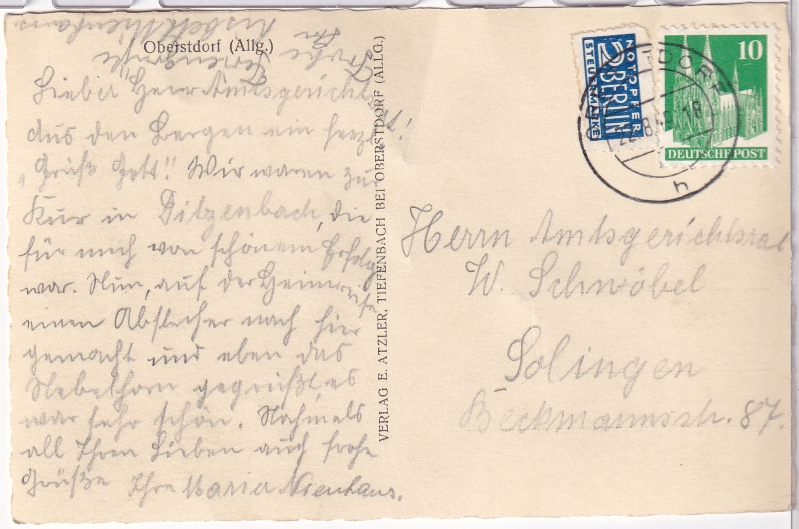 Oberstdorf (Allg.)
Lieber Herr Amtsgerichts
aus den Bergen ein herzl.
„Grüß Gott"! Wir waren zur
Kur in Ditzenbach, die
für mich von schönem Erfolg
war. Nun, auf der Heimreise
einen Abstecher nach hier
gemacht und eben das
Nebelhorn gegrüßt, es
war sehr schön. Nochmals
all Ihren Lieben auch frohe
Grüße Ihre Maria Nienhaus.
VERLAG E. ATZLER, TIEFENBACH BEI OBERSTDORF (ALLG.)
NOTOPFER
2 BERLIN
STEUERMARKE
10
DEUTSCHE POST
22.8.49-18
h
Herrn Amtsgerichtsrat
W. Schwöbel
Solingen
Beckmannsstr. 87.